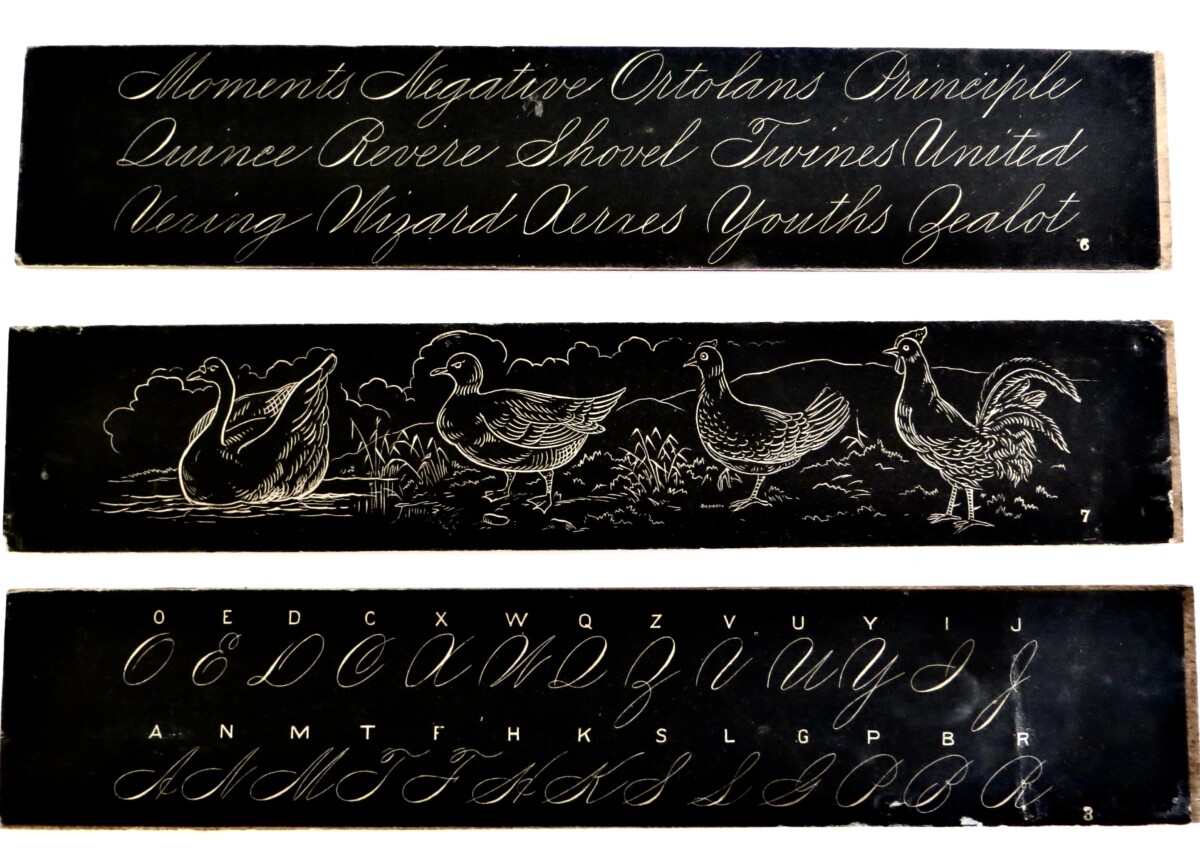 Moments Negative Ortolans Principle
Quince Revere Shovel Twines United
Vexing Wizard Xerxes Youths Zealot
6
7
O E D C X W Q Z V U Y I J
O E D C X W Q Z V U Y I J
A N M T F H K S L G P B R
A N M T F H K S L G P B R
3